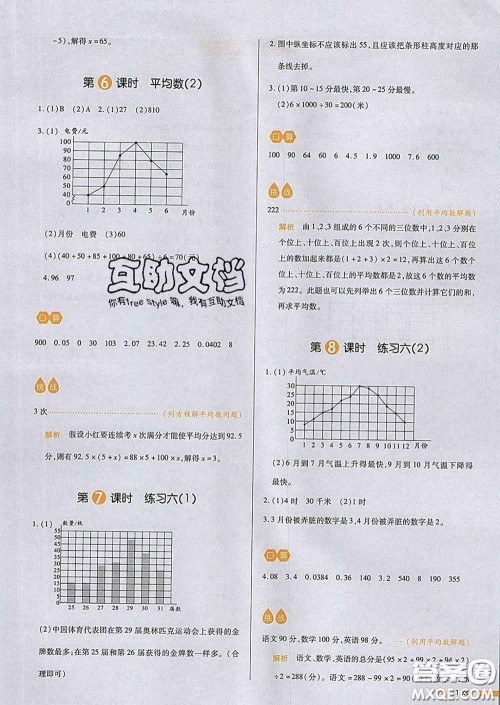 -5),解得 x=65。
第6课时 平均数(2)
1.(1)B (2)A 2.(1)27 (2)810
3.(1) 电费/元
100
90
80
70
60
50
40
30
20
10
0
1 2 3 4 5 6 月份
(2)月份 电费 (3)60
(4)(40+50+85+100+85+
4.96 97
互助文档
你有free style 嘛,我有互助文档
口算
900 0.05 30 100 47.3 2.45 22.23 0.0402 8
挑战
3 次 (列方程解平均数问题)
解析 假设小红要连续考 x 次满分才能使平均分达到 92.5
分,则有 92.5×(5+x)=88×5+100×x,解得 x=3。
第7课时 练习六(1)
1.(1) 数量/枚
25 26 27 28 29 30 31 届数
(2)中国体育代表团在第 29 届奥林匹克运动会上获得的金
牌数最多;在第 25 届和第 26 届获得的金牌数一样多。(合
理即可)
2.图中纵坐标不应该标出 55,且应该把条形柱高度对应的那
条线去掉。
3.(1)第 10~15 分最快,第 20~25 分最慢。
(2)6×1000÷30=200(米)
口算
100 90 64 60 6 4.5 1.9 1000 7.6 600
挑战
222 (利用平均数解题)
解析 由 1,2,3 组成的 6 个不同的三位数中,1,2,3 分别在
个位上、十位上、百位上出现 2 次,则 6 个数个位上、十位上、百位上
的数加起来都是(1+2+3)×2=12,再算出这 6 个数的个
位上、十位上、百位上的平均数都是 2,故这 6 个数的平均数
为 222。此题也可以先列举出 6 个三位数并计算它们的和,
再求平均数。
第8课时 练习六(2)
1.(1) 平均气温/℃
30
25
20
15
10
5
0
1 2 3 4 5 6 7 8 9 10 11 12 月份
(2)6 月到 7 月气温上升得最快,10 月到 11 月气温下降得
最快。
2.(1)4时 30 千米 (2)1时
3.3 月份被弄脏的数字是 3,4 月份被弄脏的数字是 1。
口算
4.08 3.4 0.0384 0.36 140 5.4 540 8 190 355
挑战
语文 90 分,数学 100 分,英语 98 分。 (利用平均数解题)
解析 语文、数学、英语的总分是(95×2+99×2+94×2)
÷2=288(分) 语文=288-99×2=90(分)
答案圈
MXQE.COM